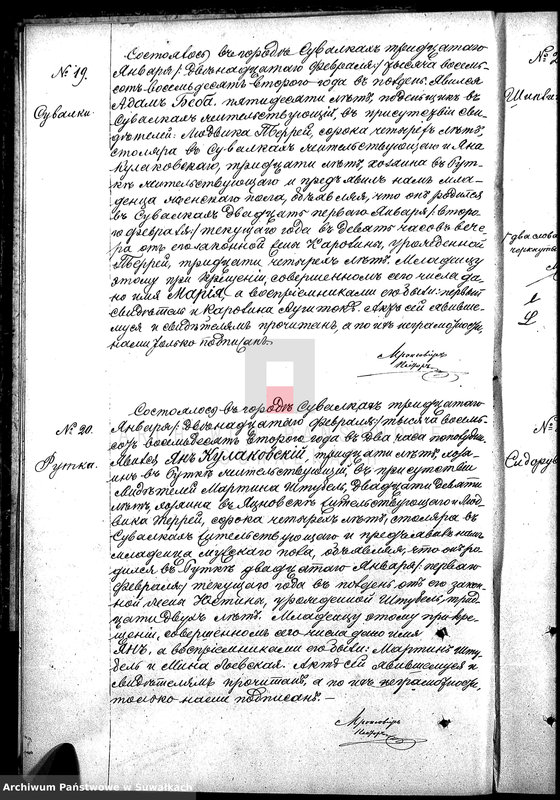 № 19.
Сувалки.
Состоялось въ городѣ Сувалкахъ тридцатаго
Января/двѣнадцатаго февраля/тысяча восемь-
сотъ восемьдесятъ второго года въ полдень. Явился
Адамъ Беба, пятидесяти лѣтъ, поденщикъ въ
Сувалкахъ жительствующій, въ присутствіи сви-
дѣтелей: Людвика Террей, сорока четырехъ лѣтъ,
столяра въ Сувалкахъ жительствующаго и Яна
Кулаковскаго, тридцати лѣтъ, хозяина въ Рут-
кѣ жительствующаго и предъявилъ намъ мла-
денца женскаго пола, объявляя, что онъ родился
въ Сувалкахъ двадцать перваго Января/второ-
го февраля/текущаго года въ девять часовъ вече-
ра отъ его законной жены Каролины, урожденной
Террей, тридцати четырехъ лѣтъ. Младенцу
этому при крещеніи, совершенномъ сего числа да-
но имя Марія, а воспріемниками его были: первый
свидѣтель и Каролина. Актъ сей явивше-
муся и свидѣтелямъ прочитанъ, а по ихъ неграмотности,
нами только подписанъ.
№ 20.
Рутка.
Состоялось въ городѣ Сувалкахъ тридцатаго
Января/двѣнадцатаго февраля/тысяча восемь-
сотъ восемьдесятъ второго года въ два часа пополудни.
Явился Янъ Кулаковскій, тридцати лѣтъ, хозя-
инъ въ Руткѣ жительствующій, въ присутствіи
свидѣтелей Мартина Штубель, двадцати девяти
лѣтъ, хозяина въ жительствующаго и Люд-
вика Террей, сорока четырехъ лѣтъ, столяра въ
Сувалкахъ жительствующаго и предъявилъ намъ
младенца мужскаго пола, объявляя, что онъ ро-
дился въ Руткѣ двадцатаго Января/перваго
февраля/текущаго года въ полдень отъ его закон-
ной жены Юстины, урожденной Штубель, трид-
цати двухъ лѣтъ. Младенцу этому при кре-
щеніи, совершенномъ сего числа дано имя
Янъ, а воспріемниками его были: Мартинъ Шту-
бель и Мина. Актъ сей явившемуся и
свидѣтелямъ прочитанъ, а по ихъ неграмотности,
только нами подписанъ.
№ 2
№
Archiwum Państwowe w Suwałkach